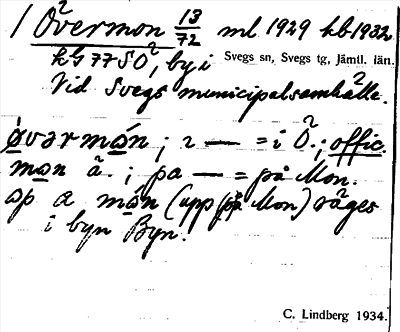 1 Overmon 13/72 ml 1929 kb 1932
kG 77 SO², by i Svegs sn, Svegs tg, Jämtl. län.
Vid Svegs municipalsamhälle.
øvarmón; 2 — = i Ö.; offic.
mon ä.; pa — = på Mon.
óp a món (upp på Mon) säges
i byn Byn.
C. Lindberg 1934.